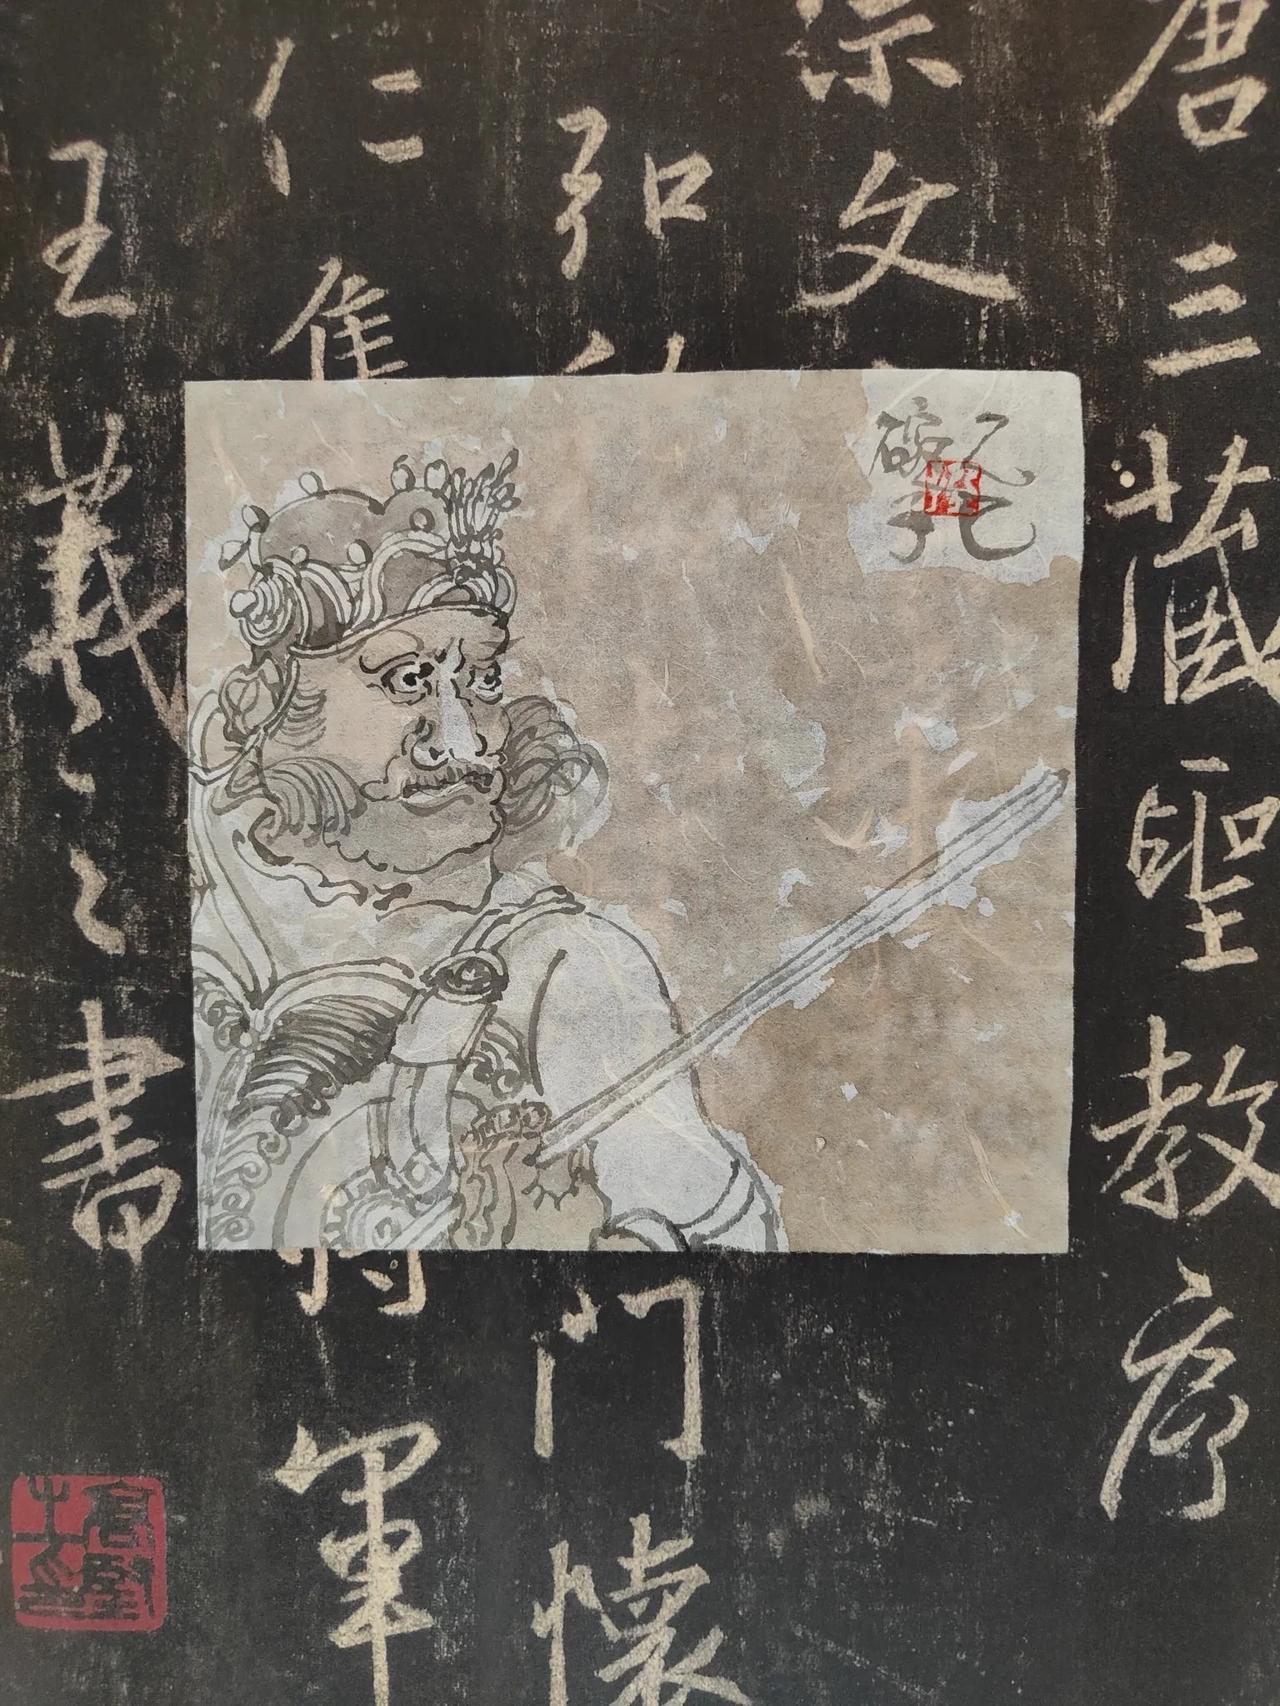 唐三藏聖教序
宗文
弘門懷
仁集將軍
王羲之書
乙巳
碗子